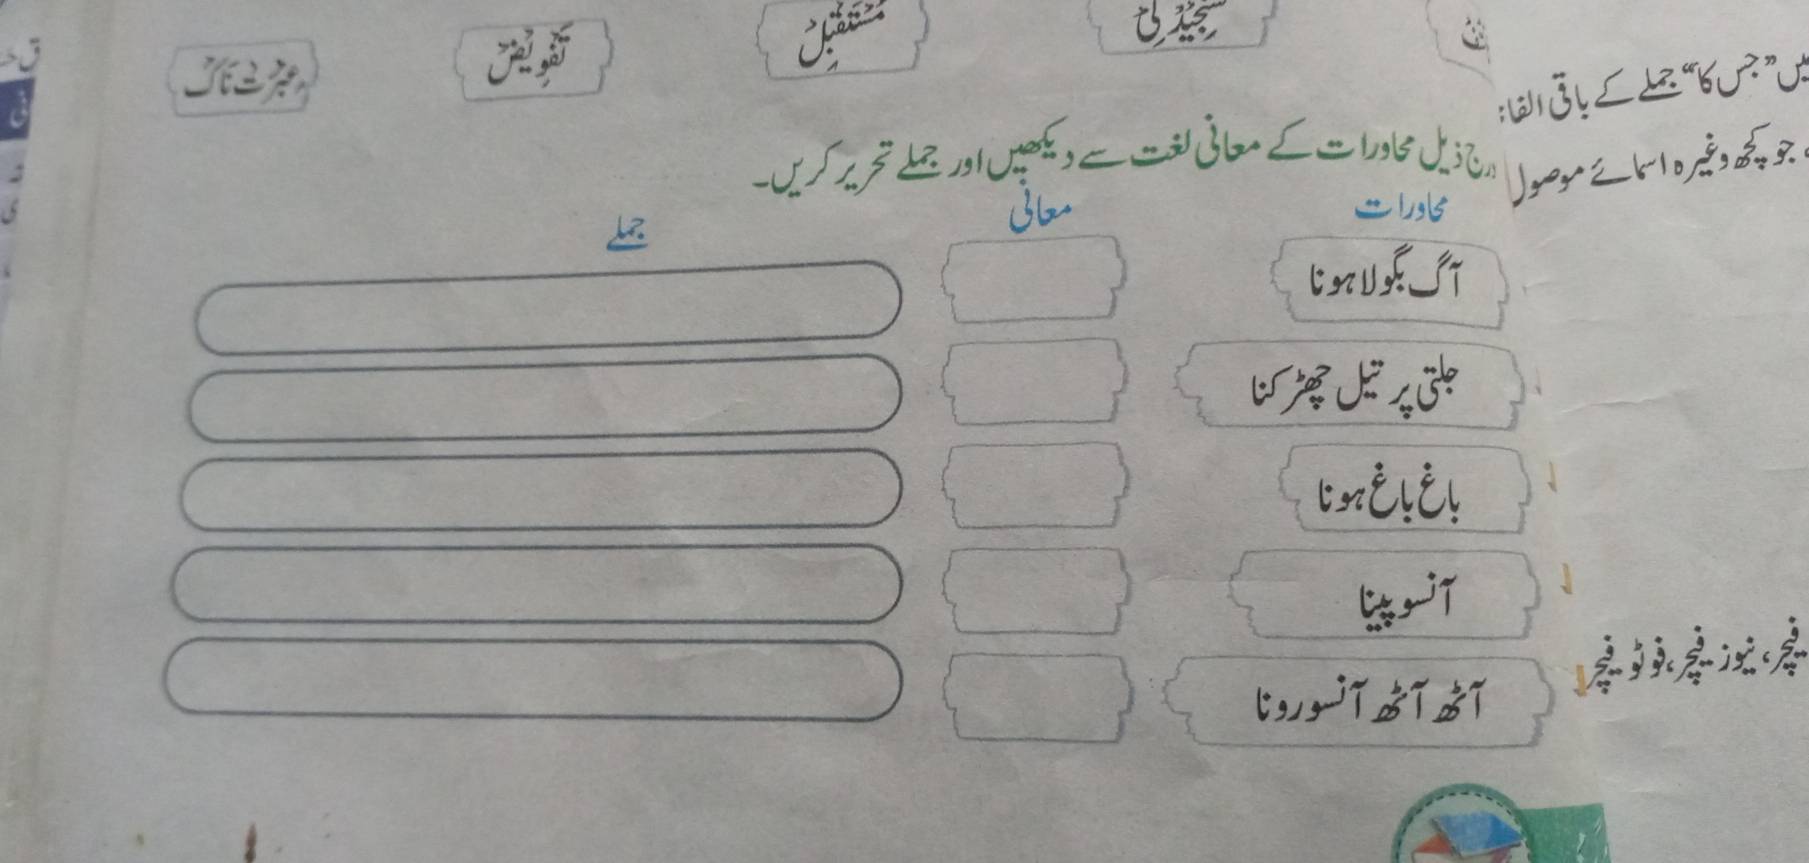 سنجیدگی مستقبل تفویض عبرت ناک
درج ذیل محاورات کے معانی لغت سے دیکھیں اور جملے تحریر کریں۔
محاورات معانی جملے
آگ بگولا ہونا
جلتی پر تیل چھڑکنا
باغ باغ ہونا
آنسو پینا
آٹھ آٹھ آنسو رونا
”جس کا“ جملے کے باقی
جو کچھ وغیرہ اسمائے موصول
فیچر، نیوز فیچر، فوٹو فیچر